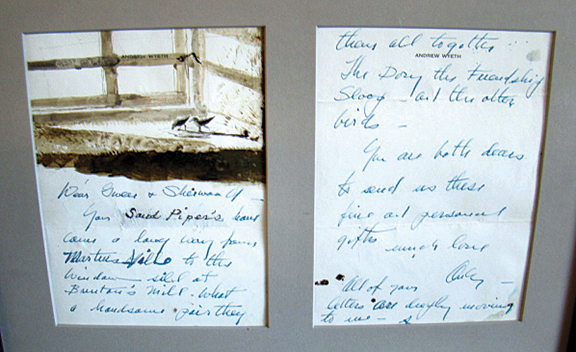 ANDREW WYETH
Dear Gwen & Sherwood —
Your Sand Piper's have
come a long way from
Martinsville to this
window sill at
Brinton's Mill. What
a handsome pair they
them all together
ANDREW WYETH
The Dory the Friendship
Sloop and the other
birds —
You are both dears
to send us these
fine and personal
gifts much love
Andy —
All of your
letters are deeply moving
to me —